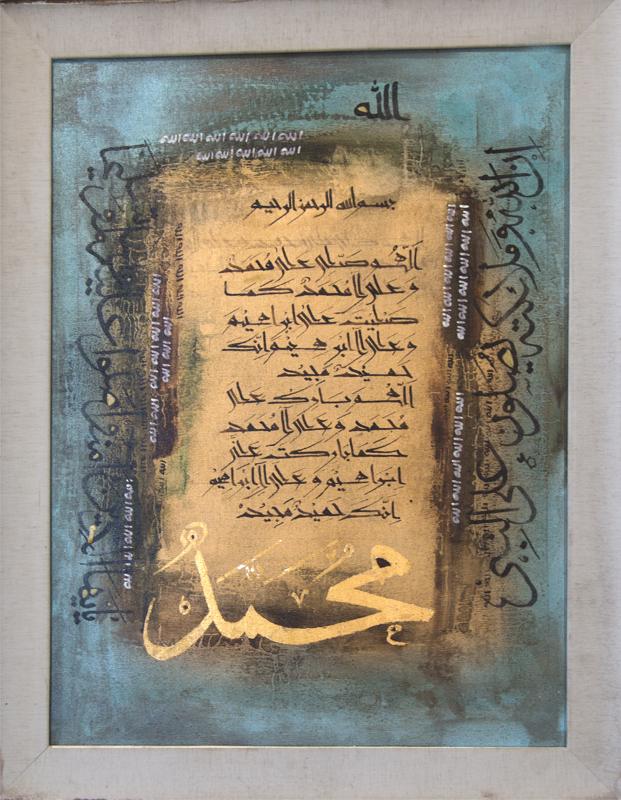 الله
الله الله الله الله الله الله
الله الله الله الله الله
بسم الله الرحمن الرحيم
اللهم صل على محمد
وعلى آل محمد كما
صليت على ابراهيم
وعلى آل ابراهيم انك
حميد مجيد
اللهم بارك على
محمد وعلى آل محمد
كما باركت على
ابراهيم وعلى آل ابراهيم
انك حميد مجيد
محمد
إن الله وملائكته يصلون على النبي
يا أيها الذين آمنوا صلوا عليه وسلموا تسليما